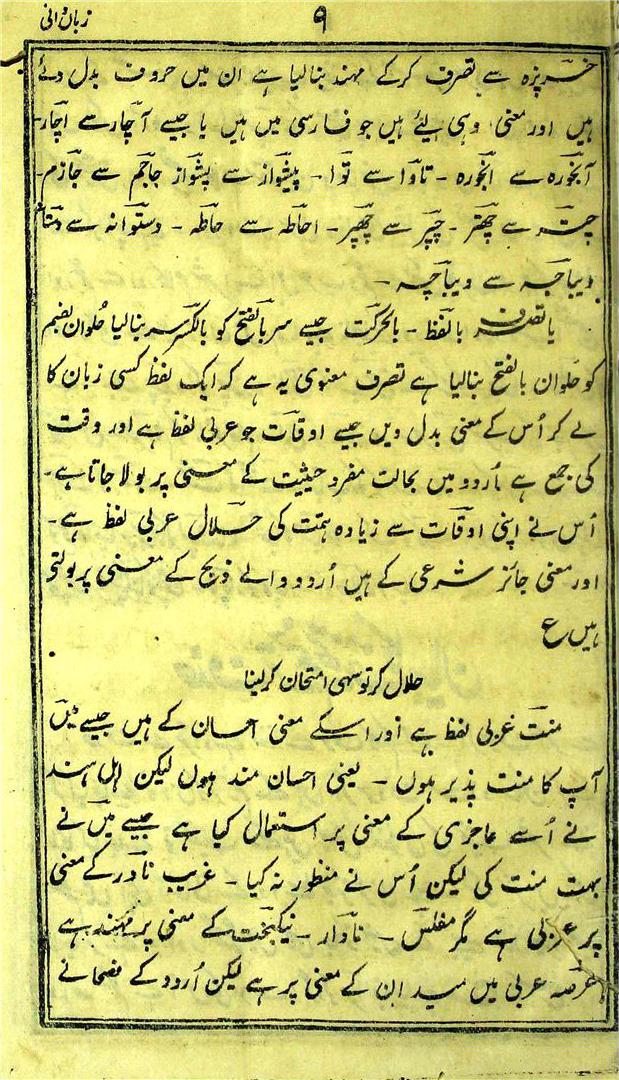 زباندانی
۹
خرپزہ سے تصرف کرکے مہند بنالیا ہے ان میں حروف بدل دئے
ہیں اور معنی وہی لیئے ہیں جو فارسی میں ہیں یا جیسے آچار سے اچار۔
آبخورہ سے ابخورہ ۔ تاوا سے توا ۔ پیشواز سے پشواز جاجم سے جازم۔
چتر سے چھتر ۔ چپر سے چھپر ۔ احاطہ سے حاطہ ۔ دستوانہ سے
دیباجہ سے دیباچہ ۔
یا تصرف بالفظ ۔ بالحرکت جیسے سر بالفتح کو بالکسر بنالیا حُلوان بضم
کو حَلوان بالفتح بنالیا ہے تصرف معنوی یہ ہے کہ ایک لفظ کسی زبان کا
لے کر اُس کے معنی بدل دیں جیسے اوقات جو عربی لفظ ہے اور وقت
کی جمع ہے اُردو میں بحالت مفرد حیثیت کے معنی پر بولا جاتا ہے۔
اُس نے اپنی اوقات سے زیادہ ہمت کی حلال عربی لفظ ہے ۔
اور معنی جائز شرعی کے ہیں اُردو والے ذبح کے معنی پر بولتے
ہیں ع
حلال کر تو سہی امتحان کرلینا
منت عربی لفظ ہے اور اسکے معنی احسان کے ہیں جیسے میں
آپ کا منت پذیر ہوں ۔ یعنی احسان مند ہوں لیکن اہل ہند
نے اُسے عاجزی کے معنی پر استعمال کیا ہے جیسے میں نے
بہت منت کی لیکن اُس نے منظور نہ کیا ۔ غریب نادر کے معنی
پر عربی ہے مگر مفلس ۔ نادار ۔ نیکبخت کے معنی پر مہند ہے
عرصہ عربی میں میدان کے معنی پر ہے لیکن اُردو کے فصحا نے